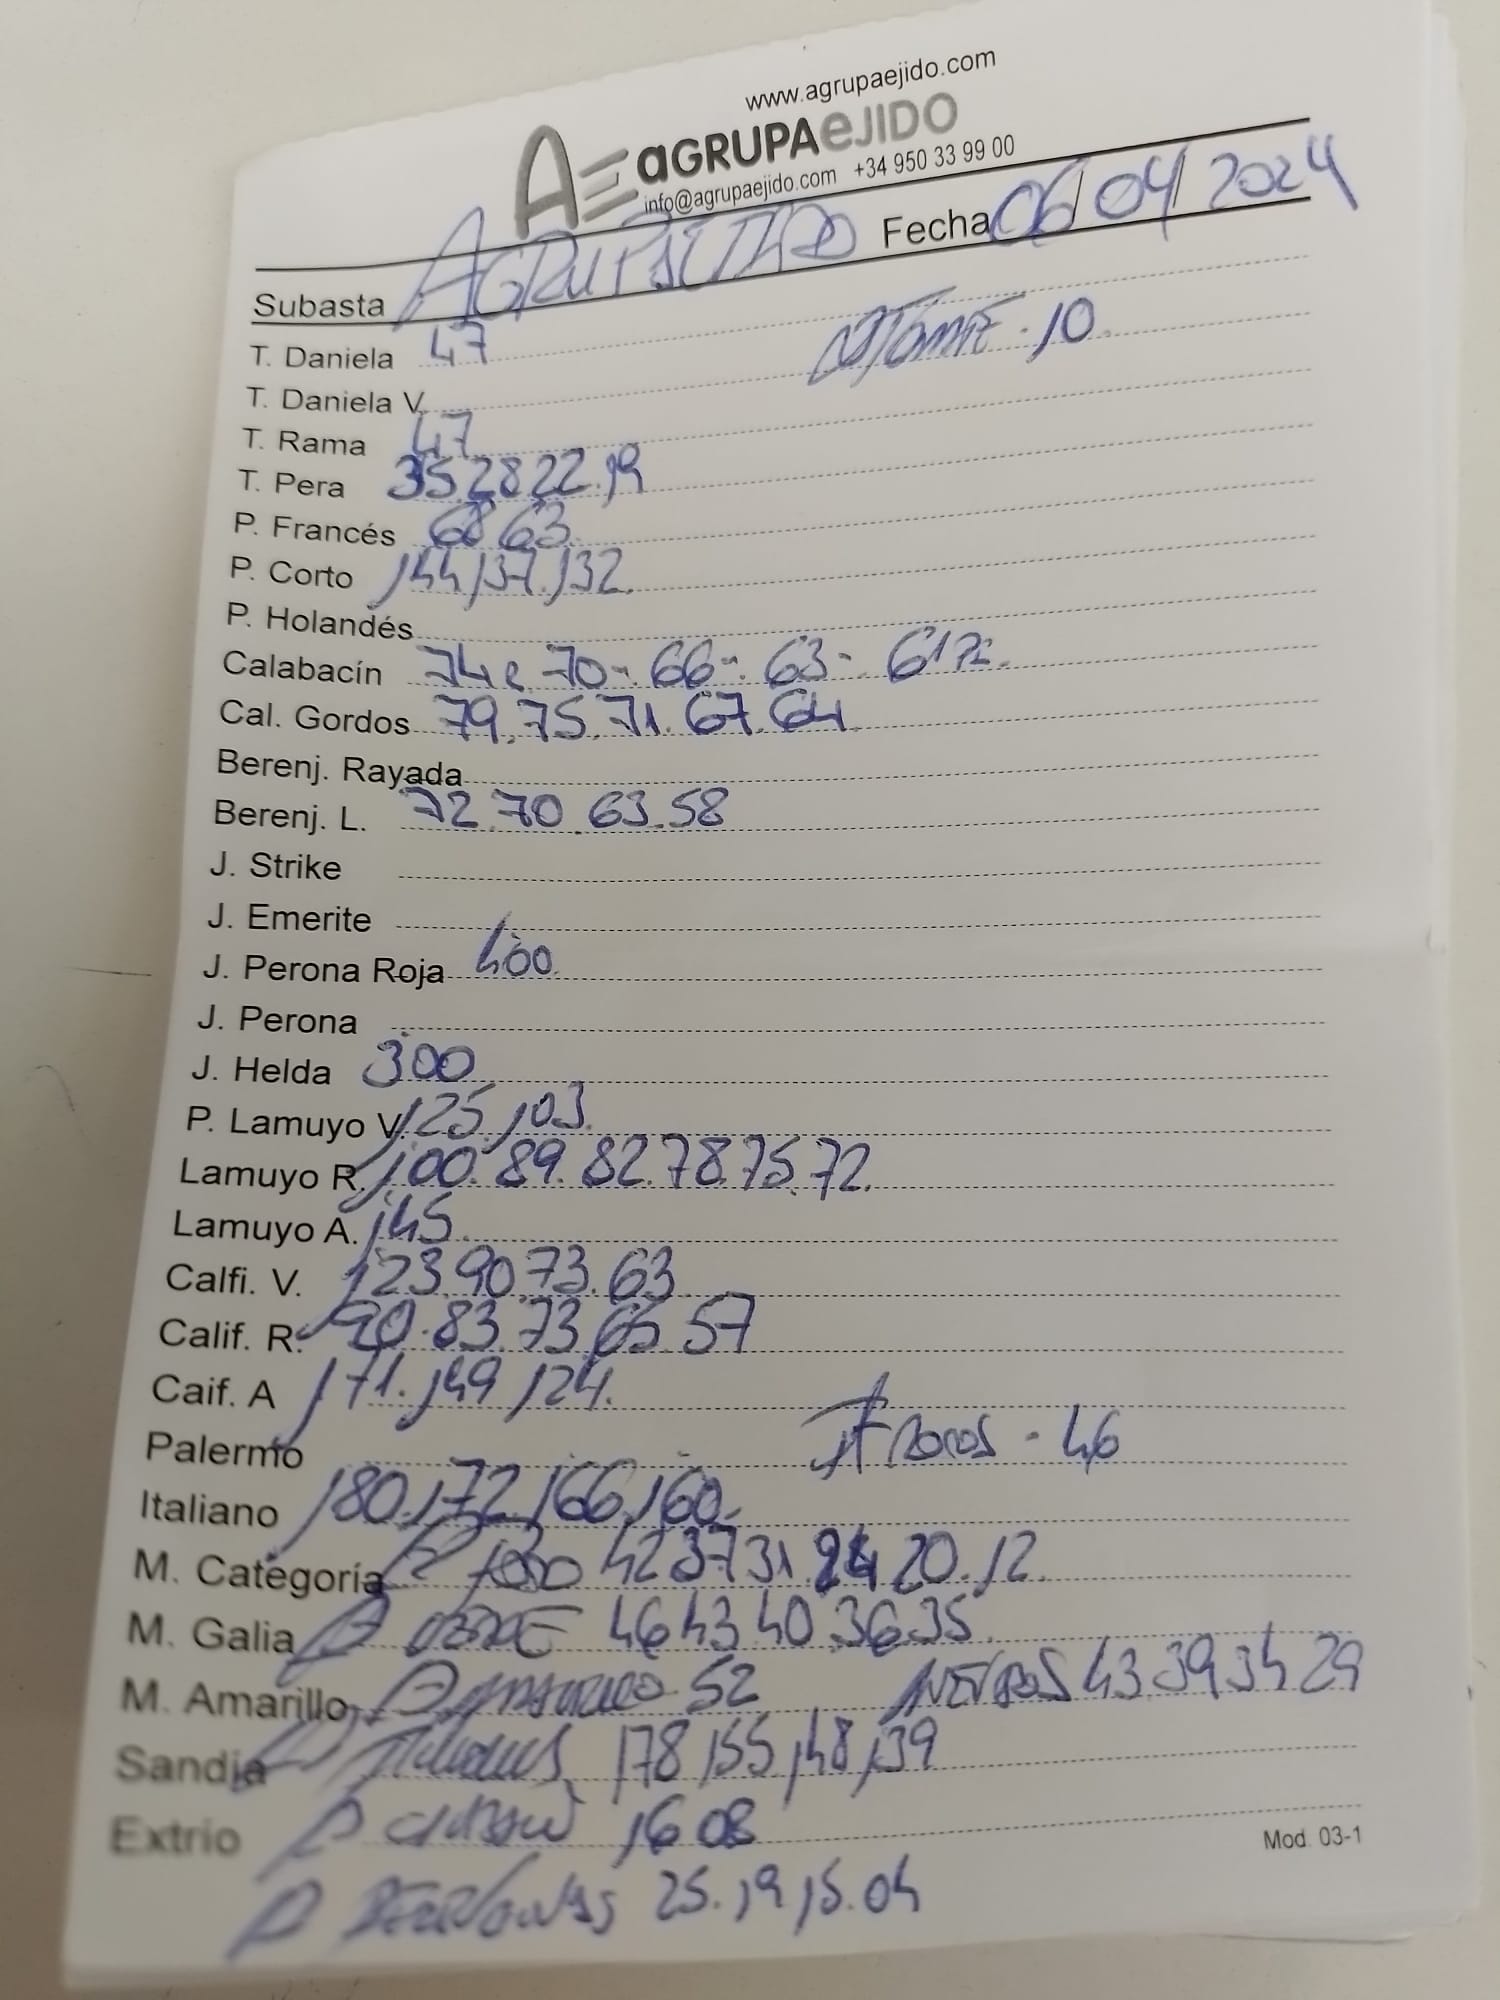 www.agrupaejido.com
AE aGRUPAeJIDO
info@agrupaejido.com +34 950 33 99 00
Subasta AGRUPAEJIDO Fecha 06/04/2024
T. Daniela 47
10.
T. Daniela V.
T. Rama 47
T. Pera 35.28.22.19
P. Francés 68 63.
P. Corto 144,137.132.
P. Holandés
Calabacín 74 70- 66- 63- 61
Cal. Gordos 79.75.71.67.64
Berenj. Rayada
Berenj. L. 72.70.63.58
J. Strike
J. Emerite
J. Perona Roja 400
J. Perona
J. Helda 300
P. Lamuyo V. 125.103.
Lamuyo R. 100.89.82.78.75.72.
Lamuyo A. 145.
Calfi. V. 123.90.73.63
Calif. R. 90.83.73.65.57
Caif. A 171.149 124.
Palermo 46
Italiano 180.172.166.160.
M. Categoría P 42 37 31 24 20.12.
M. Galia P 46 43 40.36.35.
M. Amarillo P 52 NEGROS 43.39.34 29
Sandia P 178.155.148.139
Extrio P 16 08
Mod. 03-1
P 25.19.15.04